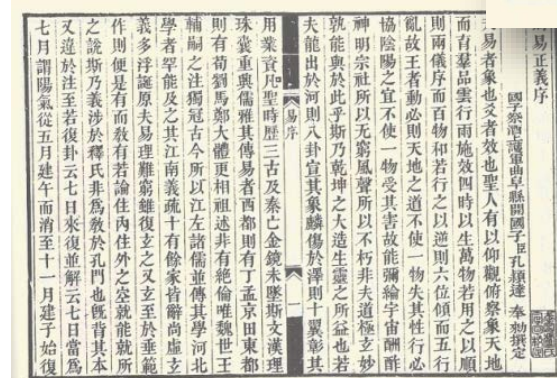 易正義序
國子祭酒上護軍曲阜縣開國子臣孔穎達 奉勑撰定
易者象也爻者效也聖人有以仰觀俯察象天地
而育羣品雲行雨施效四時以生萬物若用之以順
則兩儀序而百物和若行之以逆則六位傾而五行
亂故王者動必則天地之道不使一物失其性行必
協陰陽之宜不使一物受其害故能彌綸宇宙酬酢
神明宗社所以无窮風聲所以不朽非夫道極玄妙
孰能與於此乎斯乃乾坤之大造生靈之所益也若
夫龍出於河則八卦宣其象麟傷於澤則十翼彰其
易序 一
用業資凡聖時歷三古及秦亡金鏡未墜斯文漢理
珠囊重興儒雅其傳易者西都則有丁孟京田東都
則有荀劉馬鄭大體更相祖述非有絕倫唯魏世王
輔嗣之注獨冠古今所以江左諸儒並傳其學河北
學者罕能及之其江南義疏十有餘家皆辭尚虛玄
義多浮誕原夫易理難窮雖復玄之又玄至於垂範
作則便是有而敎有若論住內住外之空就能就所
之說斯乃義涉於釋氏非爲敎於孔門也旣背其本
又違於注至若復卦云七日來復並解云七日當爲
七月謂陽氣從五月建午而消至十一月建子始復